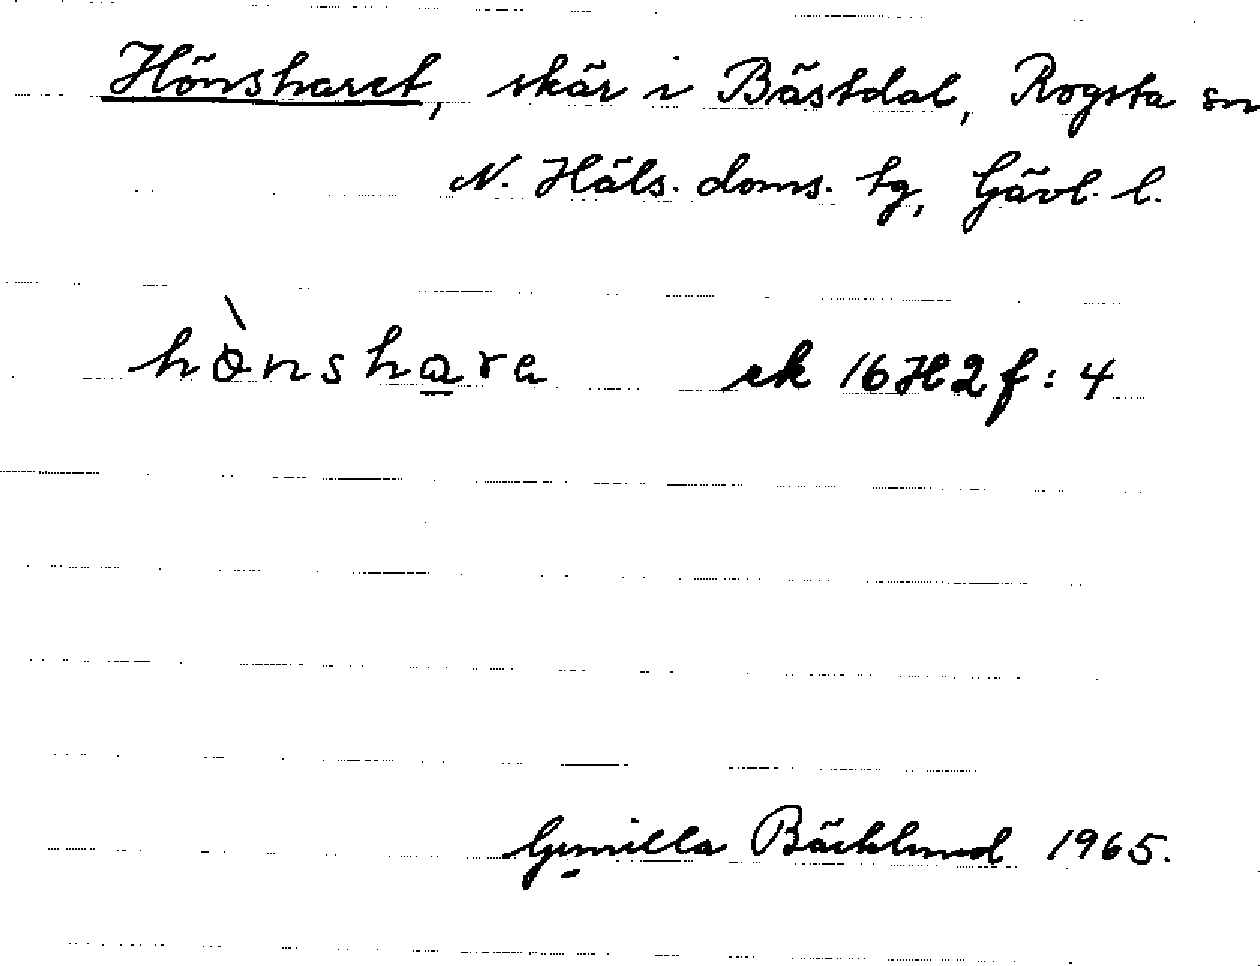 Hönsharet, skär i Bästdal, Rogsta sn
N. Häls. doms. tg, Gävl. l.
hònshara ek 16H2f:4
Gunilla Bäcklund 1965.